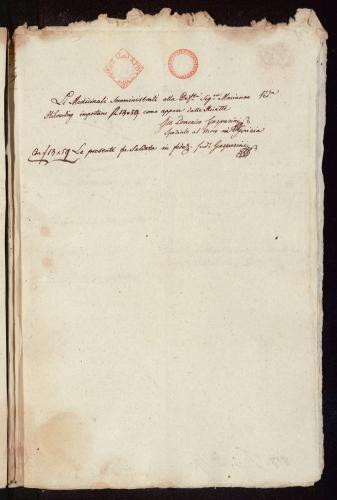 Li Medicinali somministrati alla Deft.ª Sig.ra Marianna Ved.ª
importano f 13 x 59 come appare dalle Ricette
Gio Domenico Gasparini
Speziale al Moro in Gorizia
Car f 13 x 59 La presente fu saldata in fede Gasparini